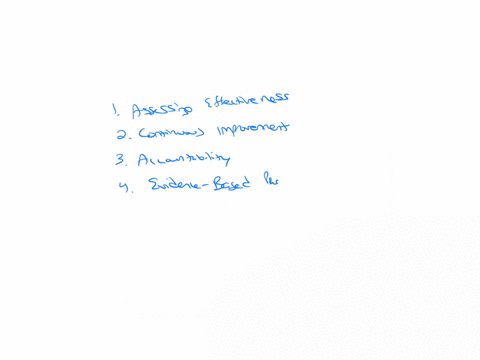 1. Assessing Effectiveness
2. Continuous Improvement
3. Accountability
4. Evidence-Based